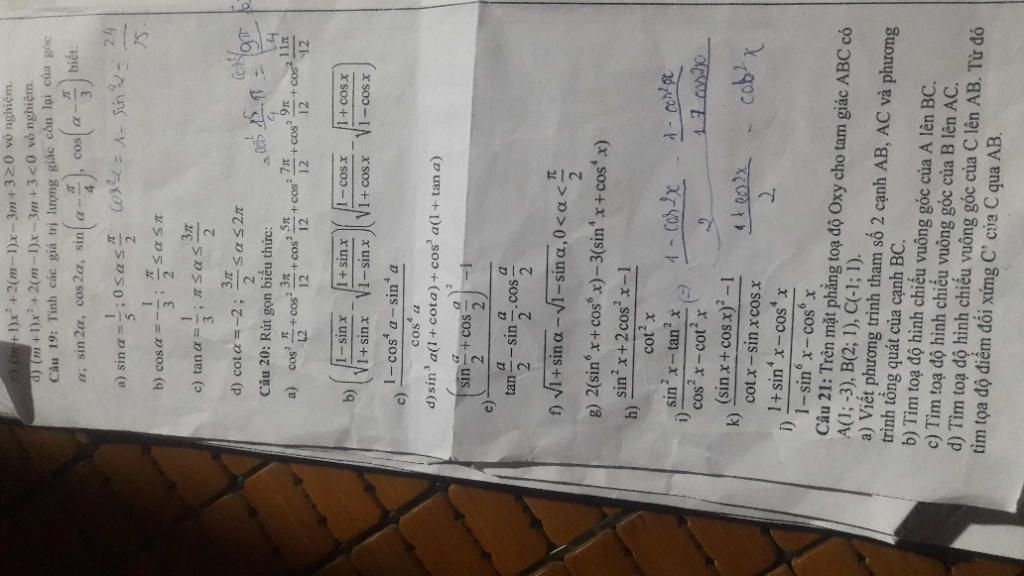 c) (m+1)x² + 2(m−1)x − 3m + 3 ≥ 0 vô nghiệm.
d) (m+1)x² + 2(m−1)x − 3m + 3 < 0 vô nghiệm.
Câu 19: Tính các giá trị lượng giác còn lại của góc
α; sin 2α, cos 2α, sin(α − π/4), cos(α − π/3) biết:
a) sin α = 1/5; 0 ≤ α ≤ π/2 cos²α = 1 − sin²α = 24/25
b) cos α = −1/3; π/2 ≤ α ≤ π
c) tan α = 1/3; π ≤ α ≤ 3π/2
d) cot α = −2; 3π/2 ≤ α ≤ 2π
Câu 20: Rút gọn biểu thức:
a) cos² π/12 + cos² 3π/12 + cos² 5π/12 + cos² 7π/12 + cos² 9π/12 + cos² 11π/12
b) (√((1−sin x)/(1+sin x)) − √((1+sin x)/(1−sin x)))(√((1−cos x)/(1+cos x)) − √((1+cos x)/(1−cos x)))
c) (1 − cos⁴ a − sin⁴ a)/(cos⁴ a)
d) sin³ a(1 + cot a) + cos³ a(1 + tan a)
e) ((sin a/2 + cos a/2)² − 1)/(tan a/2 − sin a/2 . cos a/2)
f) √(1 + sin α) − √(1 − sin α), 0 < α < π/2
g) 2(sin⁶ x + cos⁶ x) − 3(sin⁴ x + cos⁴ x)
h) (sin² x + 2 cos² x − 1)/(cot² x)
i) (sin² x − tan² x)/(cos² x − cot² x)
k) ((sin x + cos x)² − 1)/(cot x − sin x cos x)
l) (1 + sin⁴ x − cos⁴ x)/(1 − sin⁶ x − cos⁶ x)
Câu 21: Trên mặt phẳng toạ độ Oxy cho tam giác ABC có
A(1; -3), B(2; 1), C(-1; 1).
a) Viết phương trình tham số 2 cạnh AB, AC và phương
trình tổng quát của cạnh BC.
b) Tìm toạ độ hình chiếu vuông góc của A lên BC.
c) Tìm toạ độ hình chiếu vuông góc của B lên AC.
d) Tìm toạ độ hình chiếu vuông góc của C lên AB. Từ đó
tìm tọa độ điểm đối xứng C' của C qua AB.